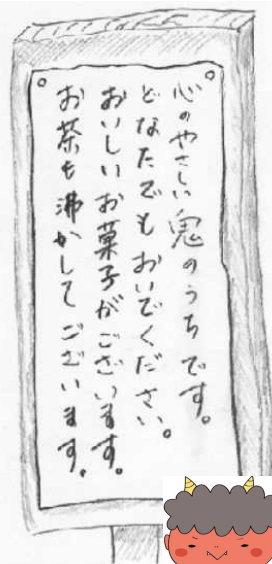 心のやさしい鬼のうちです。
どなたでもおいでください。
おいしいお菓子がございます。
お茶も沸かしてございます。